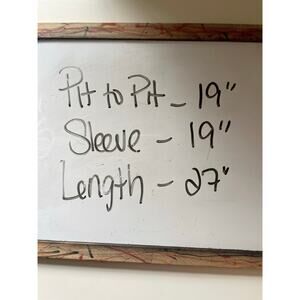 Pit to Pit - 19"
Sleeve - 19"
Length - 27"